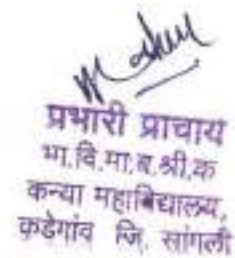 प्रभारी प्राचार्य
भा.वि.मा.ब.श्री.क
कन्या महाविद्यालय,
कडेगांव जि. सांगली